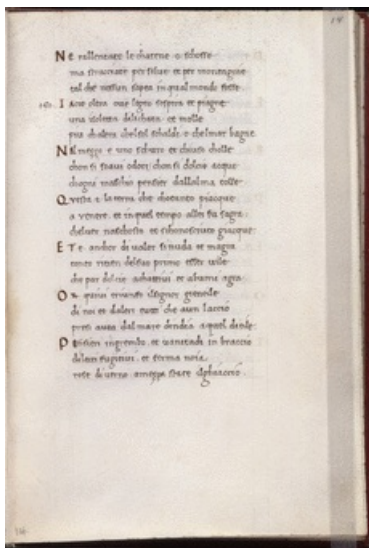 Ne rallentate le chatene o schosse
ma straccati per silue et per montagnie
tal che nessun sapea in qual mondo fosse
IAcie oltra oue legeo sospira et piagne
una isoletta delichata et molle
piu daltra chelsol schalde o chelmar bagne
Nel mezzo e uno schuro et chiuso cholle
chon si soaui odor chon si dolcie acque
chogni maschio pensier dallalma tolle
Questa e la terra che chotanto piacque
a uenere et inquel tempo allei fu sagra
chel uer naschosto et schonosciuto giacque
ET anchor di ualor si nuda et magra
tanto ritien delsuo primo esser uile
che par dolcie achattiui et abuoni agra
Or quiui triumfo ilsignor gientile
di noi et daltri tutti che aun laccio
presi auea dalmare dindia aquel ditile
Pensieri ingrembo et uanitadi in braccio
diletti fugitiui et ferma noia
rose diuerno amezza state ilghiaccio